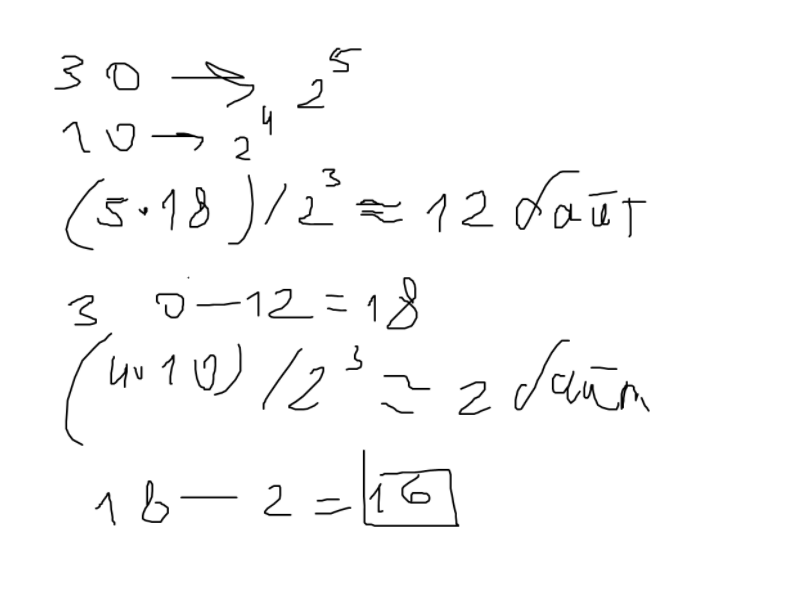 30 → 2^5
10 → 2^4
(5·18)/2^3 ≈ 12 байт
30-12=18
(4·10)/2^3 ≈ 2 байт
18-2=16